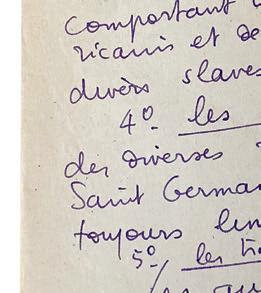 Comportant
ricains et de
divers slaves
4º les
des diverses
Saint German
toujours
5º/ les